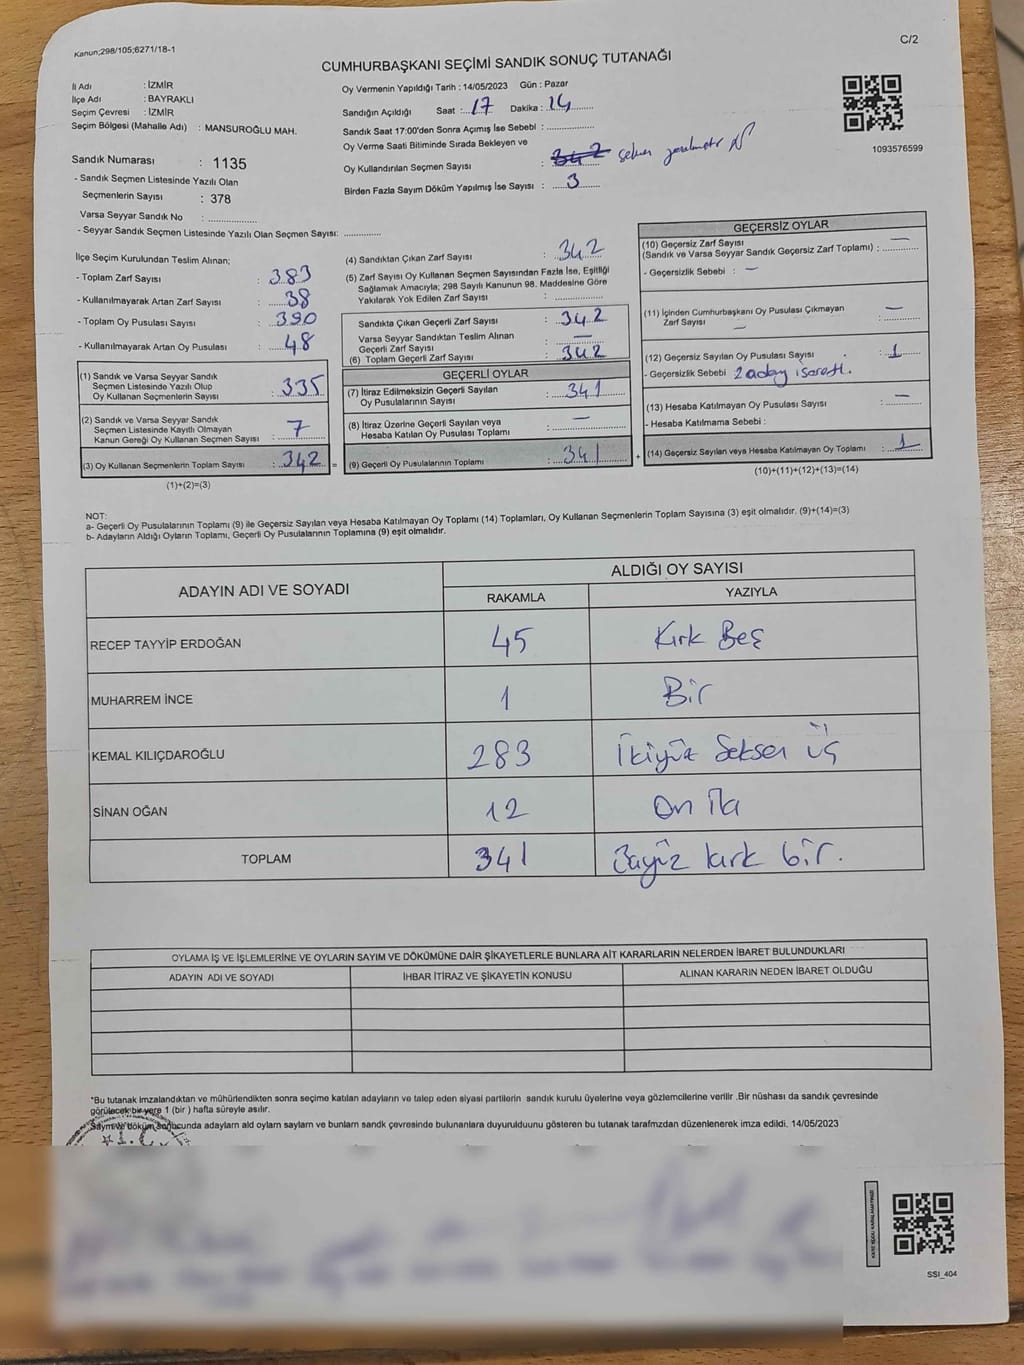 Kanun;298/105;6271/18-1
C/2
CUMHURBAŞKANI SEÇİMİ SANDIK SONUÇ TUTANAĞI
İl Adı : İZMİR
İlçe Adı : BAYRAKLI
Seçim Çevresi : İZMİR
Seçim Bölgesi (Mahalle Adı) : MANSUROĞLU MAH.
Sandık Numarası : 1135
- Sandık Seçmen Listesinde Yazılı Olan
Seçmenlerin Sayısı : 378
Varsa Seyyar Sandık No : ..............
- Seyyar Sandık Seçmen Listesinde Yazılı Olan Seçmen Sayısı: ............
Oy Vermenin Yapıldığı Tarih : 14/05/2023 Gün : Pazar
Sandığın Açıldığı Saat : 17 Dakika : 14
Sandık Saat 17:00'den Sonra Açımış İse Sebebi : ..............
Oy Verme Saati Bitiminde Sırada Bekleyen ve
Oy Kullandırılan Seçmen Sayısı : 342
Birden Fazla Sayım Döküm Yapılmış İse Sayısı : 3
1093576599
İlçe Seçim Kurulundan Teslim Alınan;
- Toplam Zarf Sayısı : 383
- Kullanılmayarak Artan Zarf Sayısı : 38
- Toplam Oy Pusulası Sayısı : 390
- Kullanılmayarak Artan Oy Pusulası : 48
(1) Sandık ve Varsa Seyyar Sandık
Seçmen Listesinde Yazılı Olup
Oy Kullanan Seçmenlerin Sayısı : 335
(2) Sandık ve Varsa Seyyar Sandık
Seçmen Listesinde Kayıtlı Olmayan
Kanun Gereği Oy Kullanan Seçmen Sayısı : 7
(3) Oy Kullanan Seçmenlerin Toplam Sayısı : 342 =
(1)+(2)=(3)
(4) Sandıktan Çıkan Zarf Sayısı : 342
(5) Zarf Sayısı Oy Kullanan Seçmen Sayısından Fazla İse, Eşitliği
Sağlamak Amacıyla; 298 Sayılı Kanunun 98. Maddesine Göre
Yakılarak Yok Edilen Zarf Sayısı : ..............
Sandıkta Çıkan Geçerli Zarf Sayısı : 342
Varsa Seyyar Sandıktan Teslim Alınan
Geçerli Zarf Sayısı : —
(6) Toplam Geçerli Zarf Sayısı : 342
GEÇERLİ OYLAR
(7) İtiraz Edilmeksizin Geçerli Sayılan
Oy Pusulalarının Sayısı : 341
(8) İtiraz Üzerine Geçerli Sayılan veya
Hesaba Katılan Oy Pusulası Toplamı : —
(9) Geçerli Oy Pusulalarının Toplamı : 341 +
GEÇERSİZ OYLAR
(10) Geçersiz Zarf Sayısı
(Sandık ve Varsa Seyyar Sandık Geçersiz Zarf Toplamı) : —
- Geçersizlik Sebebi : —
(11) İçinden Cumhurbaşkanı Oy Pusulası Çıkmayan
Zarf Sayısı : —
(12) Geçersiz Sayılan Oy Pusulası Sayısı : 1
- Geçersizlik Sebebi 2 aday işaretl.
(13) Hesaba Katılmayan Oy Pusulası Sayısı : —
- Hesaba Katılmama Sebebi :
(14) Geçersiz Sayılan veya Hesaba Katılmayan Oy Toplamı : 1
(10)+(11)+(12)+(13)=(14)
NOT:
a- Geçerli Oy Pusulalarının Toplamı (9) ile Geçersiz Sayılan veya Hesaba Katılmayan Oy Toplamı (14) Toplamları, Oy Kullanan Seçmenlerin Toplam Sayısına (3) eşit olmalıdır. (9)+(14)=(3)
b- Adayların Aldığı Oyların Toplamı, Geçerli Oy Pusulalarının Toplamına (9) eşit olmalıdır.
ADAYIN ADI VE SOYADI
ALDIĞI OY SAYISI
RAKAMLA YAZIYLA
RECEP TAYYİP ERDOĞAN 45 Kırk Beş
MUHARREM İNCE 1 Bir
KEMAL KILIÇDAROĞLU 283 İkiyüz Seksen üç
SİNAN OĞAN 12 On iki
TOPLAM 341 Üçyüz kırk bir.
OYLAMA İŞ VE İŞLEMLERİNE VE OYLARIN SAYIM VE DÖKÜMÜNE DAİR ŞİKAYETLERLE BUNLARA AİT KARARLARIN NELERDEN İBARET BULUNDUKLARI
ADAYIN ADI VE SOYADI İHBAR İTİRAZ VE ŞİKAYETİN KONUSU ALINAN KARARIN NEDEN İBARET OLDUĞU
*Bu tutanak imzalandıktan ve mühürlendikten sonra seçime katılan adayların ve talep eden siyasi partilerin sandık kurulu üyelerine veya gözlemcilerine verilir .Bir nüshası da sandık çevresinde
görülecek bir yere 1 (bir ) hafta süreyle asılır.
Sayım ve döküm sonucunda adayların ald oylarn sayları ve bunların sandk çevresinde bulunanlara duyurulduunu gösteren bu tutanak tarafmzdan düzenlenerek imza edildi. 14/05/2023
SSI_404